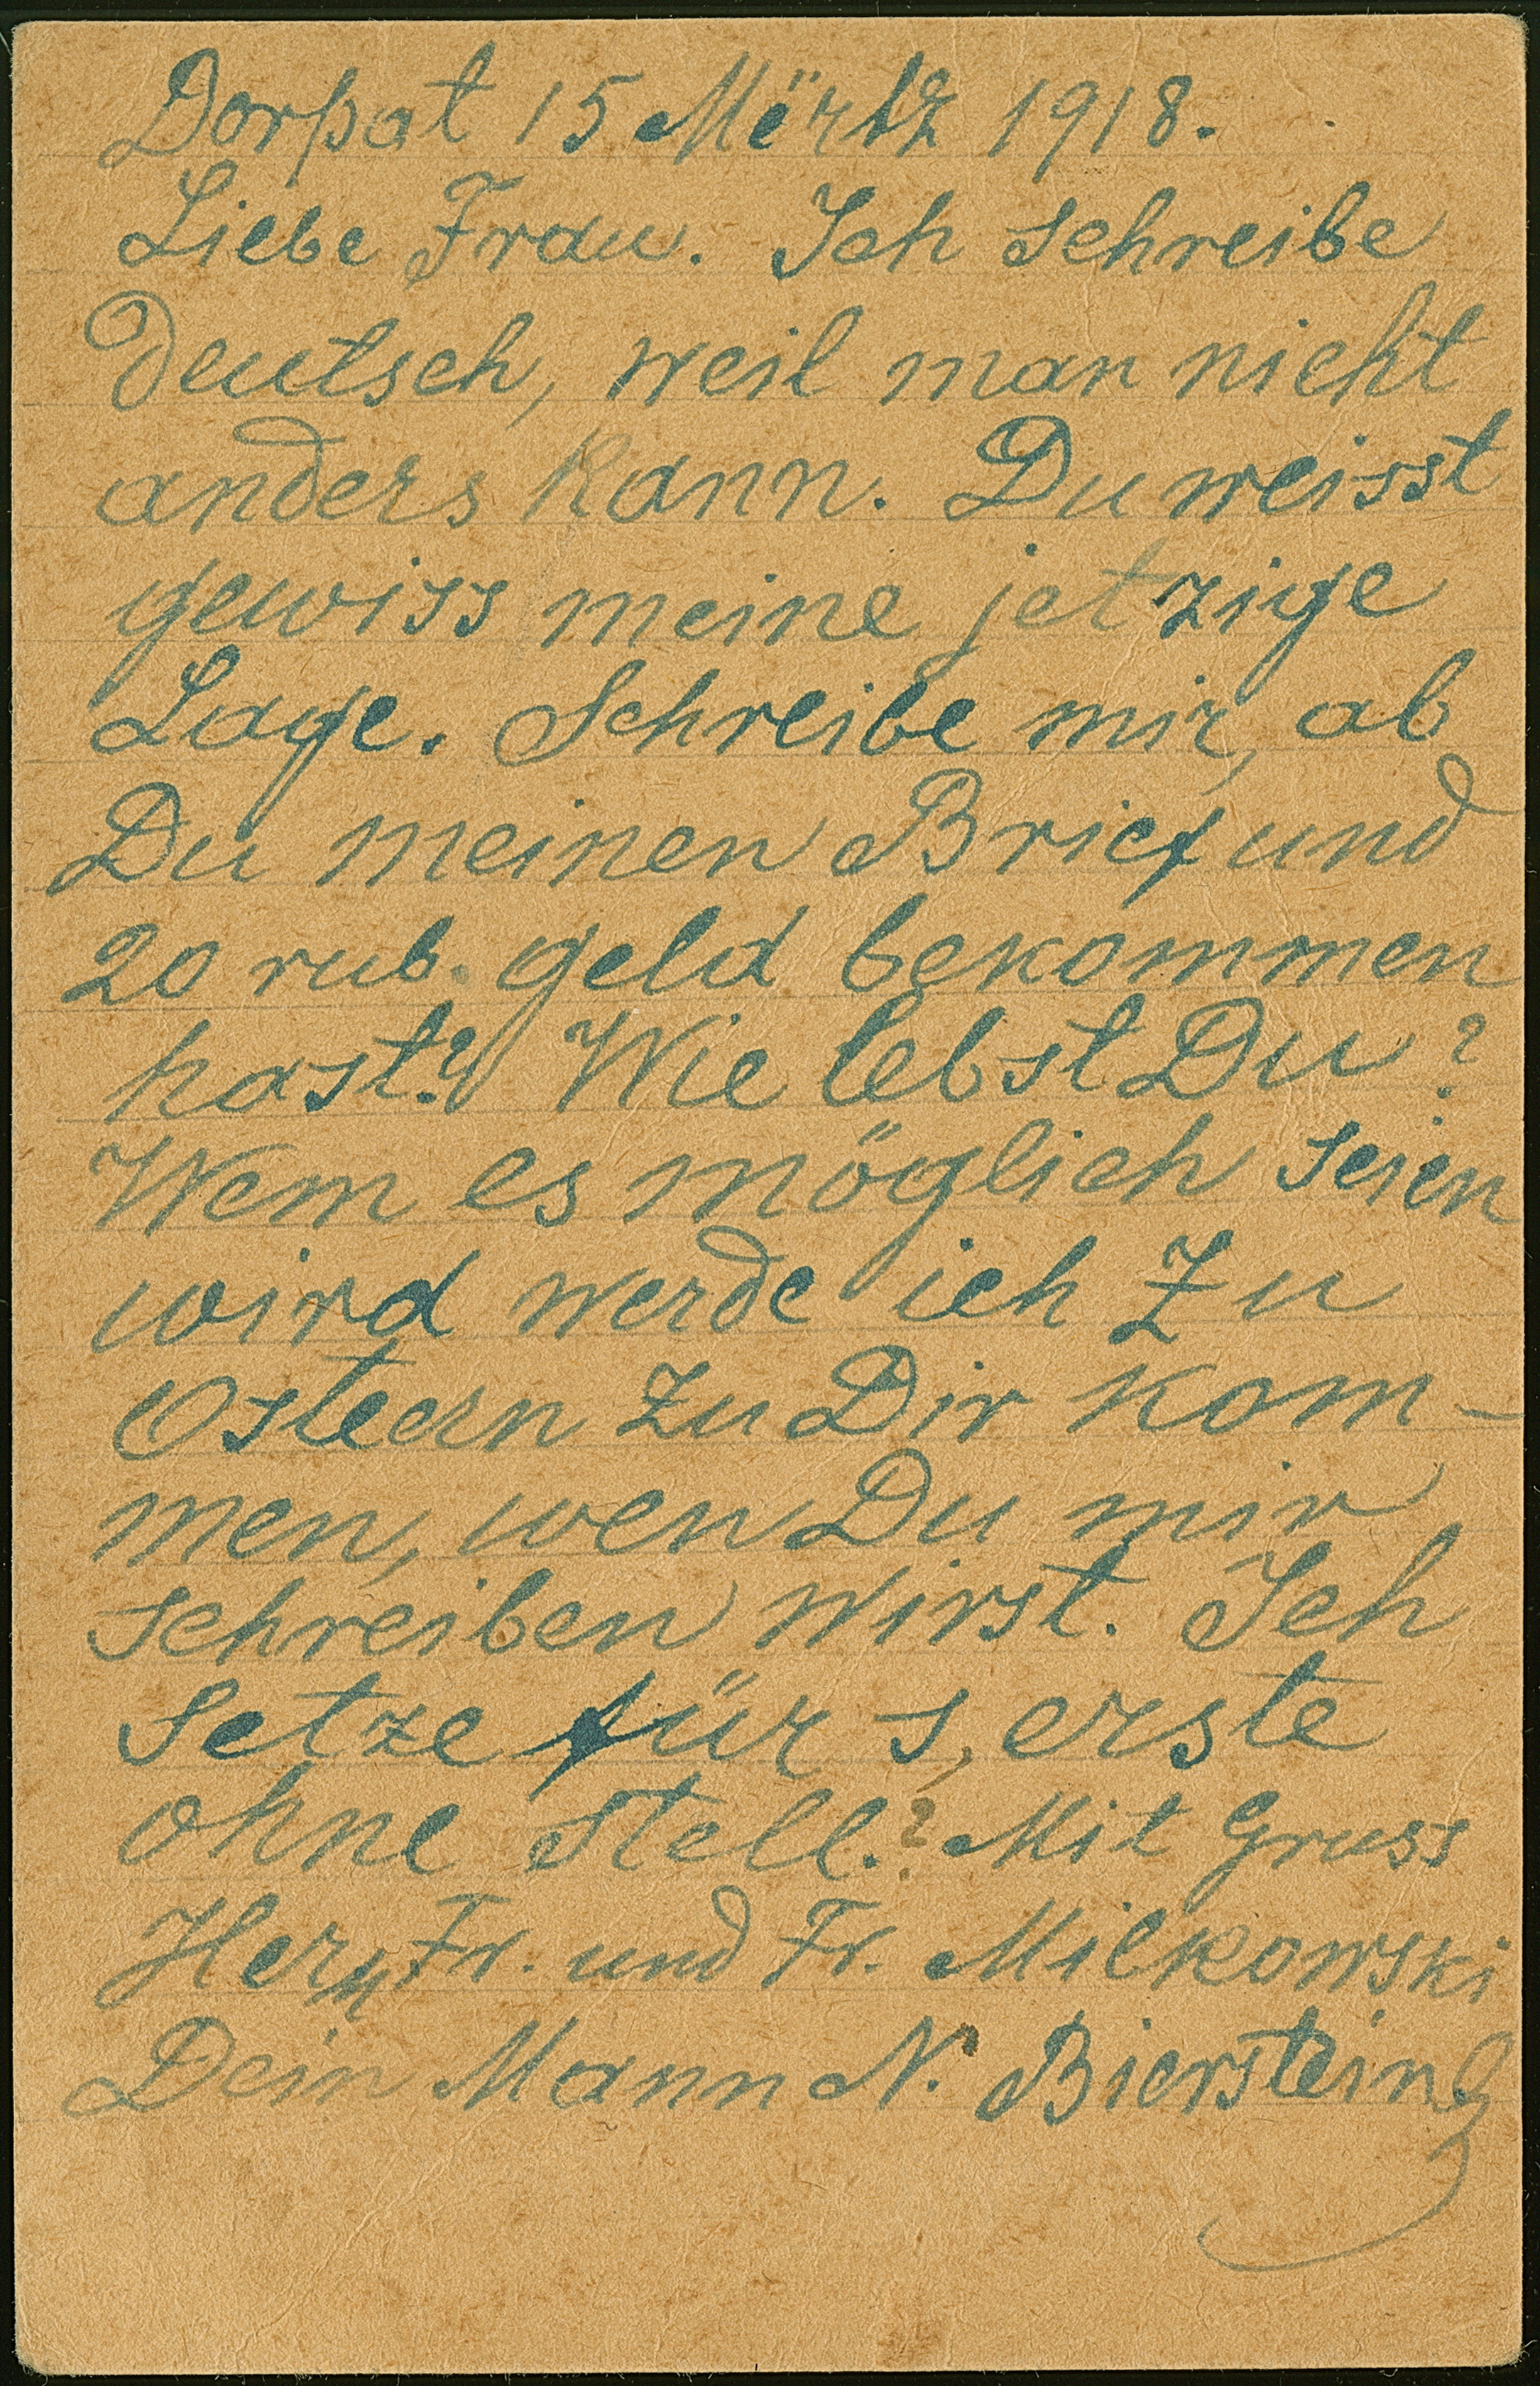 Dorpat 15 Märtz 1918.
Liebe Frau. Ich schreibe
deutsch, weil man nicht
anders kann. Du weisst
gewiss meine jetzige
Lage. Schreibe mir, ob
Du meinen Brief und
20 rub. geld bekommen
hast? Wie lebst Du?
Wem es möglich seien
wird werde ich zu
Ostern zu Dir kom-
men, wen Du mir
schreiben wirst. Ich
setze für s, erste
ohne Stell.? Mit Gruss
Hern Fr. und Fr. Milkowski
Dein Mann N. Bierstein